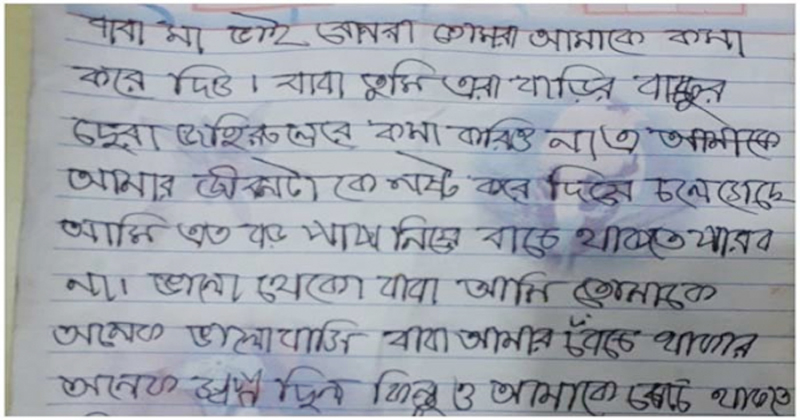 বাবা মা ভাই বোনরা তোমরা আমাকে কমা
করে দিও। বাবা তুমি এরা বাড়ির বাচ্চুর
জহিরুলেরে কমা করিও না এ আমাকে
আমার জীবনটা কে নষ্ট করে দিয়ে চলে গেছে
আমি এত বড় পাপ নিয়ে বাচে থাকতে পারব
না। ভালো থেকো বাবা আমি তোমাকে
অনেক ভালোবাসি বাবা আমার বেঁচে থাকার
অনেক স্বপ্ন ছিল কিন্তু ও আমাকে বেচে থাকতে